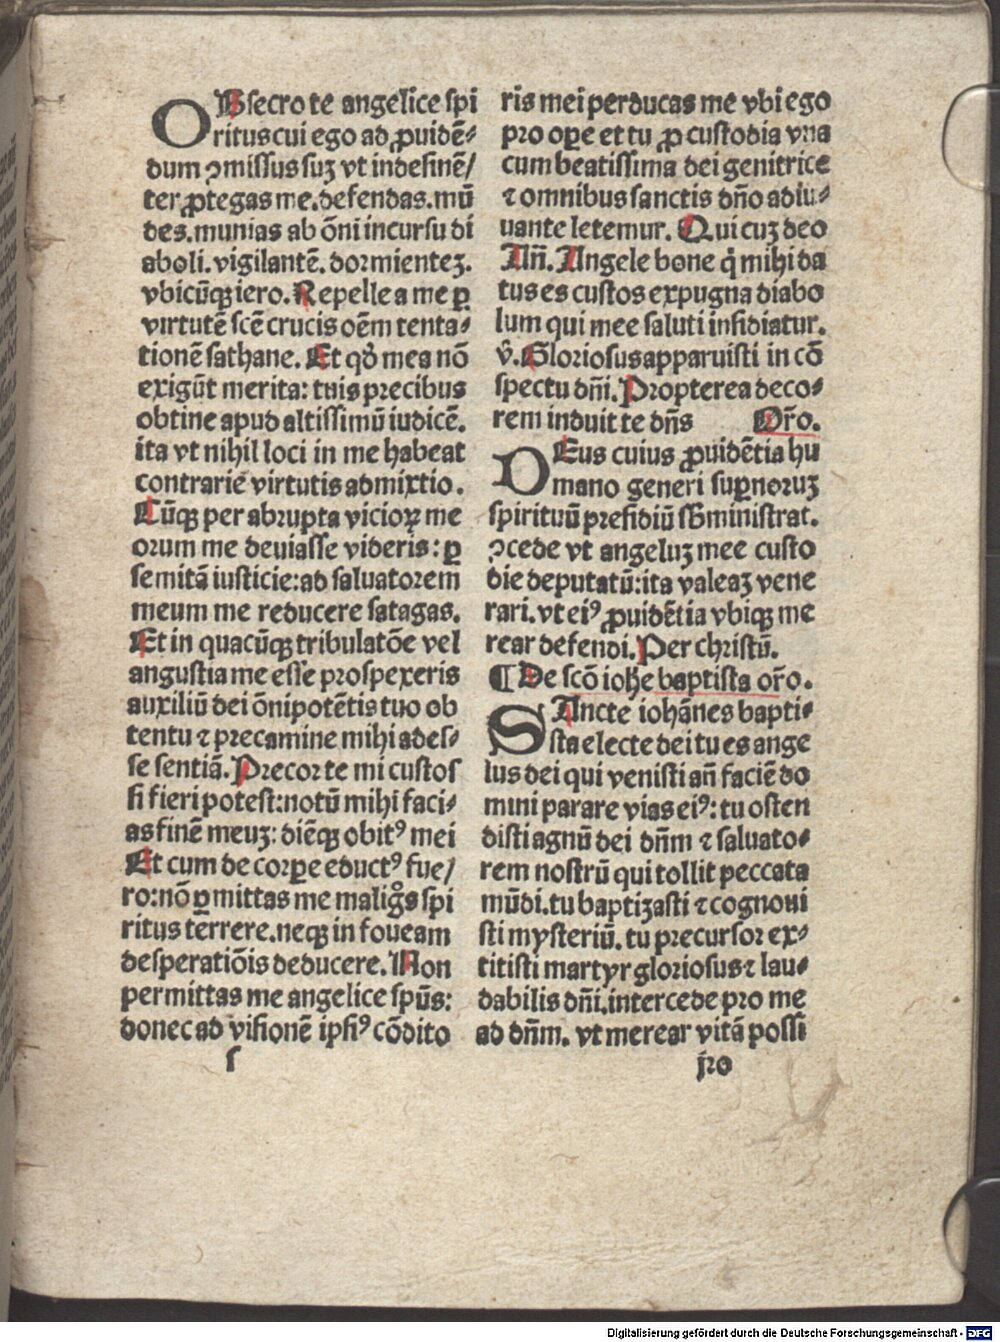 OBsecro te angelice spi
ritus cui ego ad ꝓuidē⸗
dum ꝯmissus suꝫ vt indefinē/
ter ꝓtegas me.defendas.mū
des.munias ab ōni incursu di
aboli.vigilantē.dormienteꝫ.
vbicūqꝫ iero.Repelle a me ꝑ
virtutē scē crucis oēm tenta⸗
tionē sathane. Et qꝺ mea nō
exigūt merita: tuis precibus
obtine apud altissimū iudicē.
ita vt nihil loci in me habeat
contrarie virtutis admixtio.
Cūqꝫ per abrupta vicioꝝ me
orum me deuiasse videris: ꝑ
semitā iusticie: ad saluatorem
meum me reducere satagas.
Et in quacūqꝫ tribulatōe vel
angustia me esse prospexeris
auxiliū dei ōnipotētis tuo ob
tentu ⁊ precamine mihi ades⸗
se sentiā. Precor te mi custos
si fieri potest: notū mihi faci⸗
as finē meuꝫ: diēqꝫ obitꝰ mei
Et cum de corꝑe eductꝰ fue/
ro: nō ꝑmittas me malig̊s spi
ritus terrere.neqꝫ in foueam
desperatiōis deducere. Non
permittas me angelice spūs:
donec ad visionē ipsiꝰ cōdito
s
ris mei perducas me vbi ego
pro oꝑe et tu ꝓ custodia vna
cum beatissima dei genitrice
⁊ omnibus sanctis dño adiu⸗
uante letemur. Qui cuꝫ deo
Añ. Angele bone q̇ mihi da
tus es custos expugna diabo
lum qui mee saluti insidiatur.
v̂. Gloriosus apparuisti in cō
spectu dñi. Propterea deco⸗
rem induit te dñs Or̄o.
DEus cuius ꝓuidētia hu
mano generi suꝑnoruꝫ
spirituū presidiū sb̄ministrat.
ꝯcede vt angeluꝫ mee custo
die deputatū: ita valeaꝫ vene
rari. vt eiꝰ ꝓuidētia vbiqꝫ me
rear defendi. Per christū.
¶ De scō ioh̄e baptista or̄o.
SAncte iohānes bapti⸗
sta electe dei tu es ange
lus dei qui venisti añ faciē do
mini parare vias eiꝰ: tu osten
disti agnū dei dñm ⁊ saluato⸗
rem nostrū qui tollit peccata
mūdi.tu baptizasti ⁊ cognoui
sti mysteriū. tu precursor ex⸗
titisti martyr gloriosus ⁊ lau⸗
dabilis dñi.intercede pro me
ad dñm. vt merear vitā possi
Digitalisierung gefördert durch die Deutsche Forschungsgemeinschaft - DFG